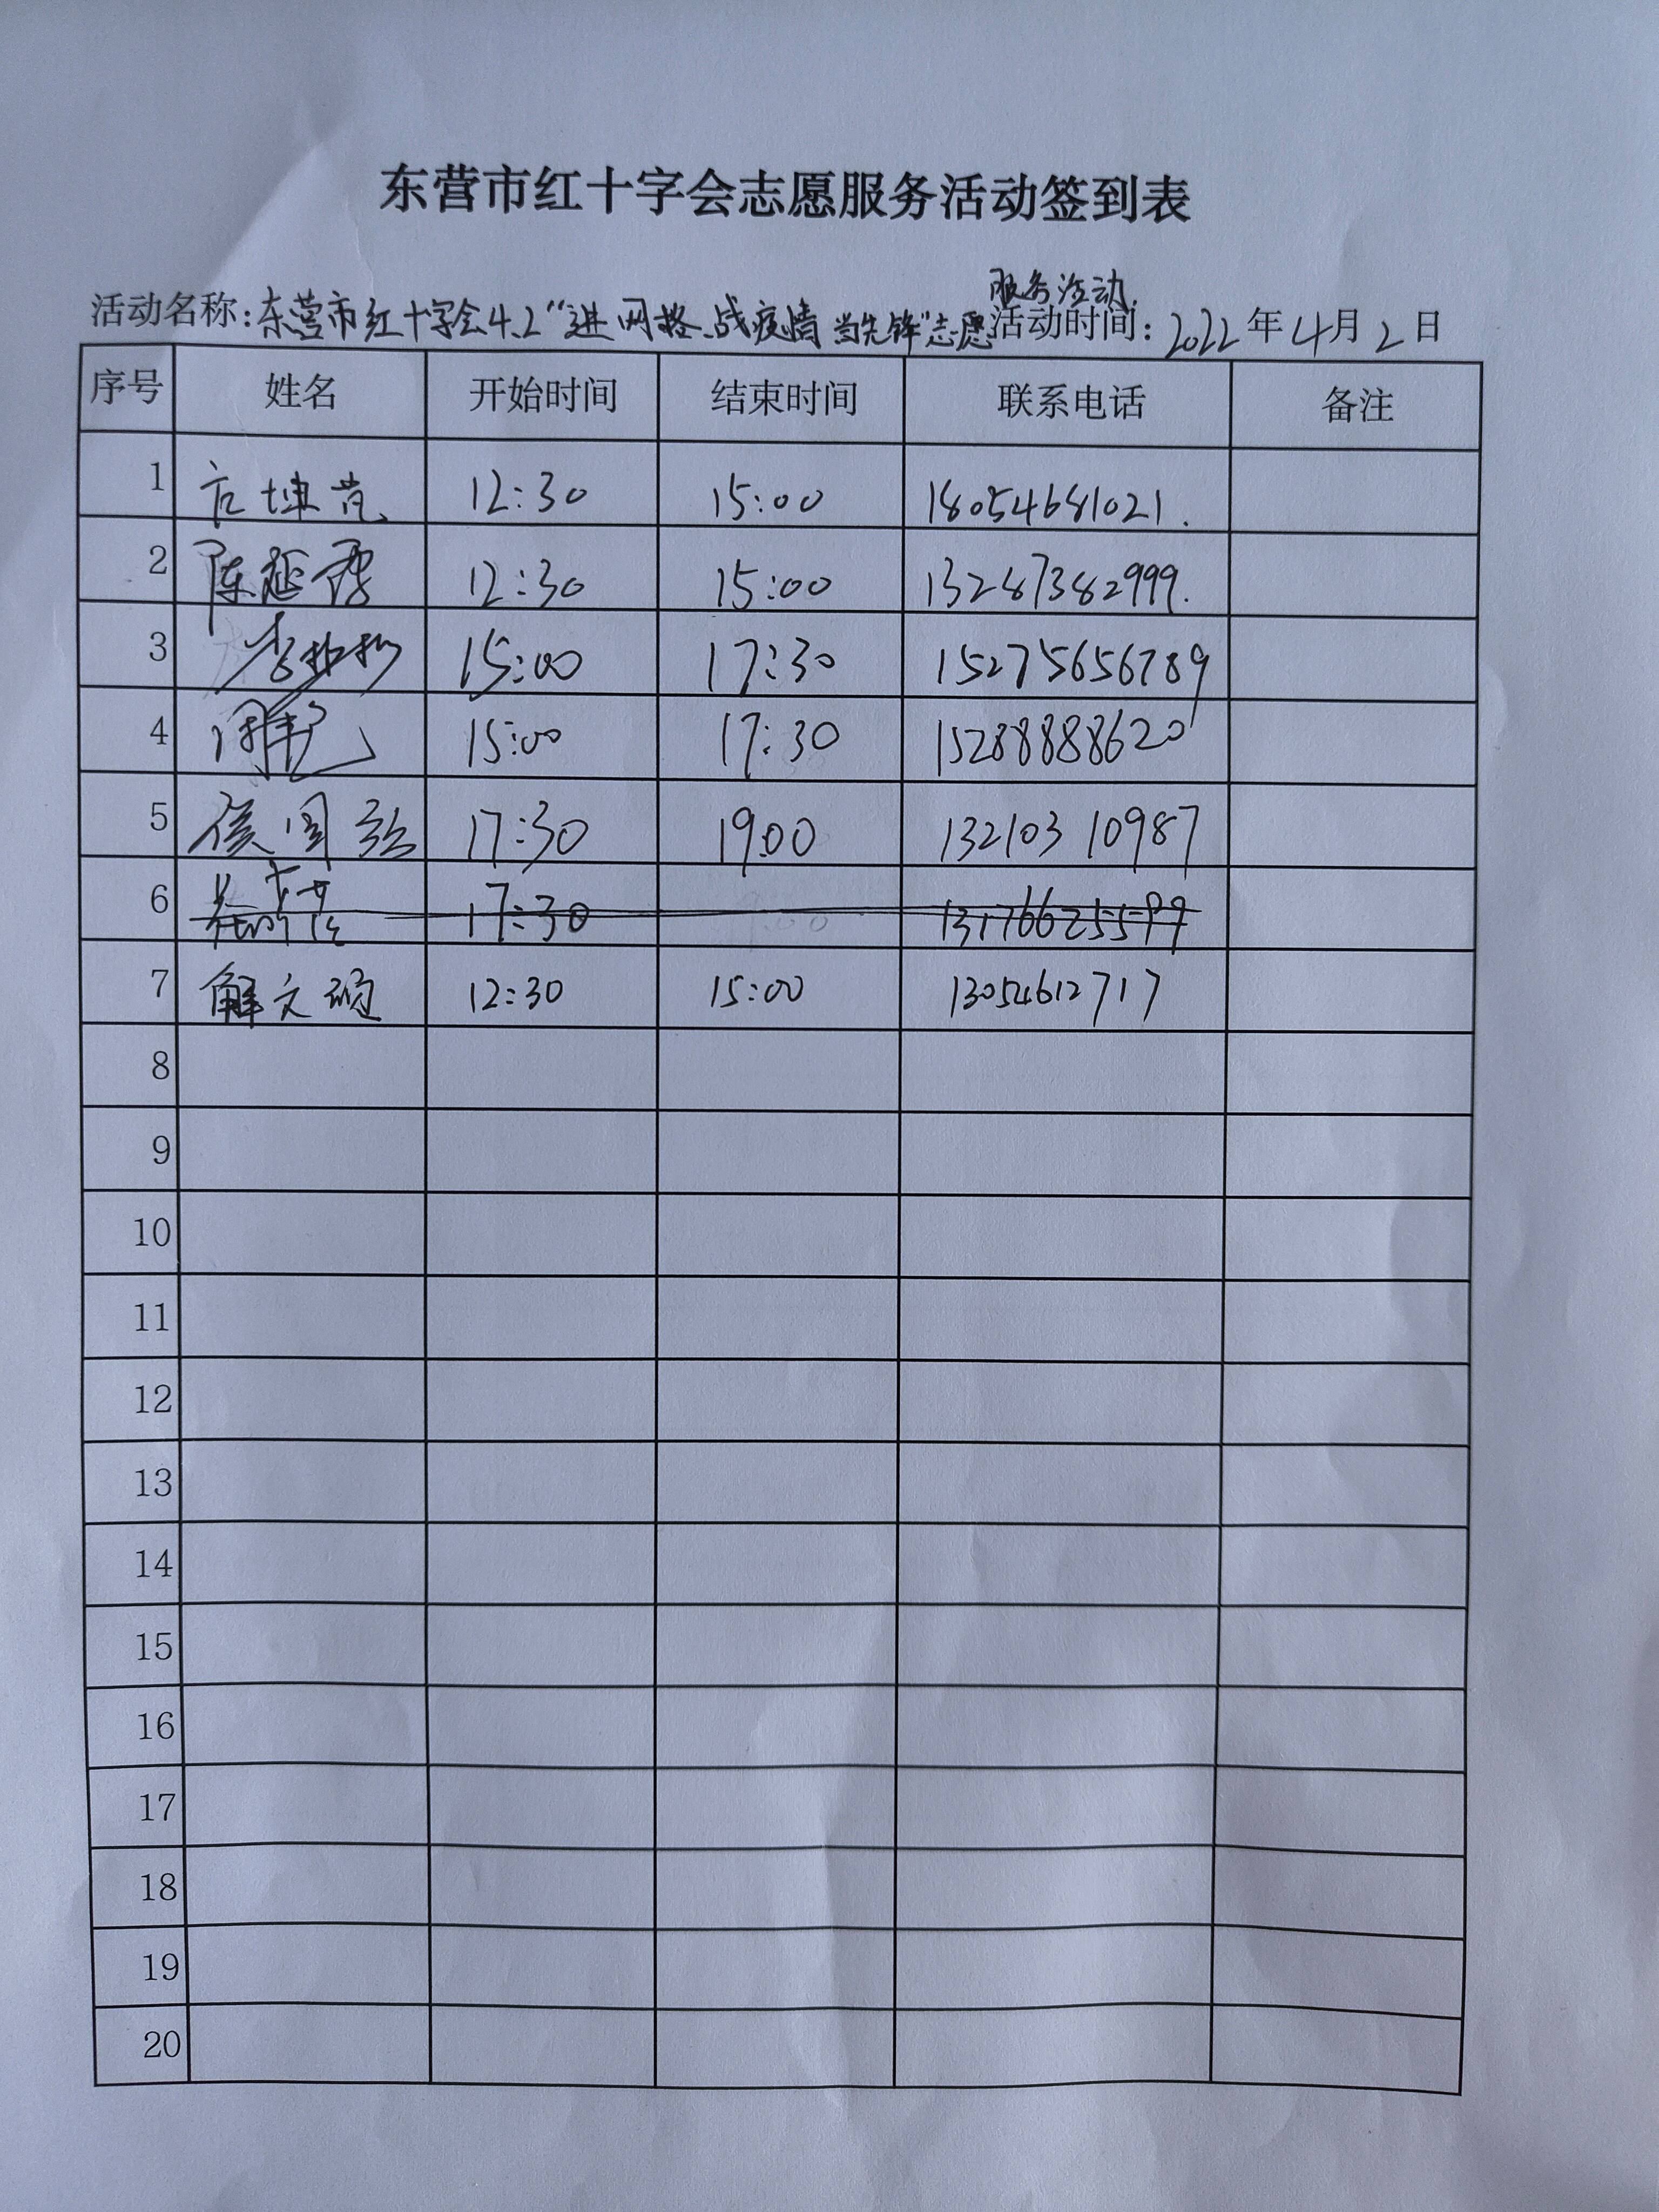 东营市红十字会志愿服务活动签到表
服务活动
活动名称:东营市红十字会4.2“进网格、战疫情 当先锋”志愿 活动时间: 2022 年 4 月 2 日
序号 姓名 开始时间 结束时间 联系电话 备注
1 12:30 15:00 18054681021.
2 陈延霞 12:30 15:00 13287382999.
3 15:00 17:30 15275656789
4 15:00 17:30 15288888620
5 侯国 17:30 19:00 13210310987
6 17:30 13176625599
7 解文硕 12:30 15:00 13054612717
8
9
10
11
12
13
14
15
16
17
18
19
20